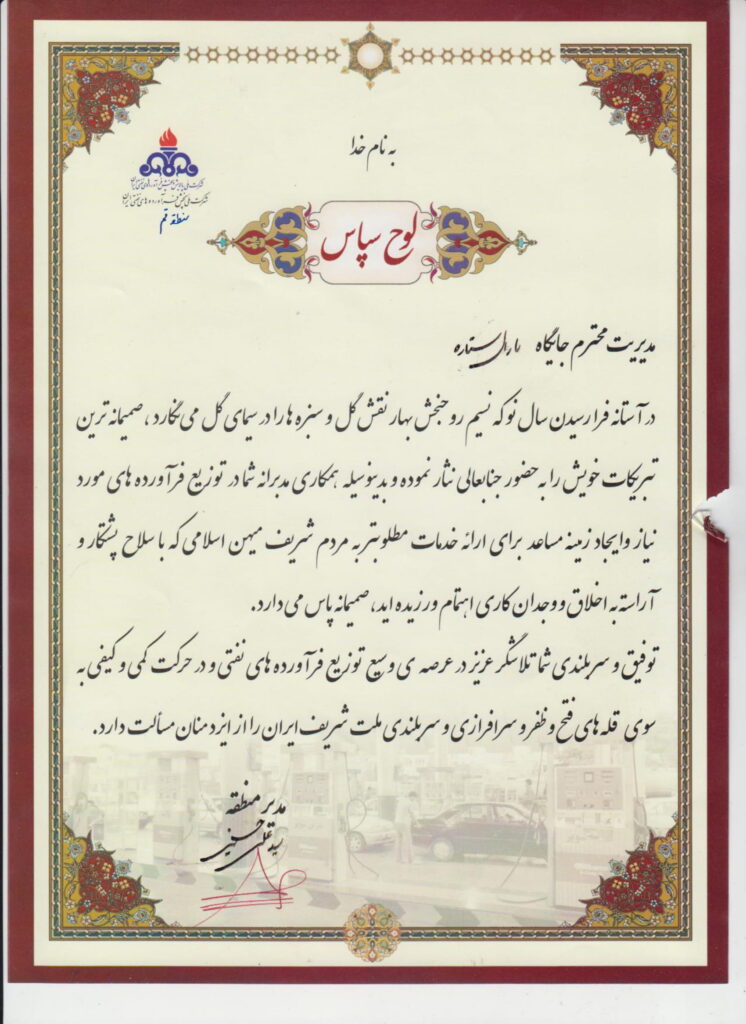 به نام خدا
شرکت ملی پالایش و پخش فرآورده‌های نفتی ایران
شرکت ملی پخش فرآورده‌های نفتی ایران
منطقه قم
لوح سپاس
مدیریت محترم جایگاه مارال ستاره
در آستانه فرارسیدن سال نو که نسیم روحبخش بهار نقش گل و سبزه ها را در سیمای گل می نگارد، صمیمانه ترین
تبریکات خویش را به حضور جنابعالی نثار نموده و بدینوسیله همکاری مدبرانه شما در توزیع فرآورده های مورد
نیاز و ایجاد زمینه مساعد برای ارائه خدمات مطلوبتر به مردم شریف میهن اسلامی که با سلاح پشتکار و
آراسته به اخلاق و وجدان کاری اهتمام ورزیده اید، صمیمانه پاس می دارد.
توفیق و سربلندی شما تلاشگر عزیز در عرصه ی وسیع توزیع فرآورده های نفتی و در حرکت کمی و کیفی به
سوی قله های فتح و ظفر و سرافرازی و سربلندی ملت شریف ایران را از ایزد منان مسألت دارد.
مدیر منطقه
سید تقی حسینی